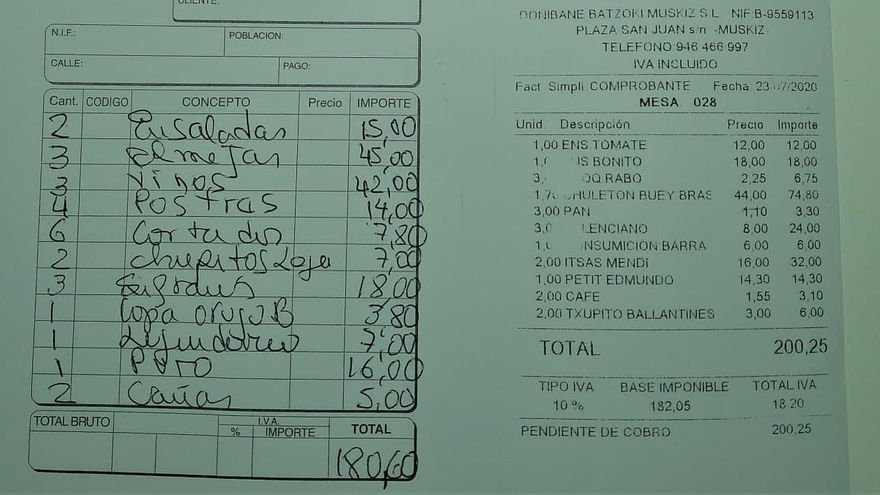 CLIENTE:
N.I.F.:
POBLACION:
CALLE:
PAGO:
Cant. CODIGO CONCEPTO Precio IMPORTE
2 Ensaladas 15,00
3 Almejas 45,00
3 Vinos 42,00
4 Postras 14,00
6 Cortados 7,80
2 chupitos 7,00
3 18,00
1 Copa orujo B 3,80
1 7,00
1 16,00
2 Cañas 5,00
TOTAL BRUTO I.V.A. TOTAL
% IMPORTE
180,60
DONIBANE BATZOKI MUSKIZ S.L. NIF:B-9559113
PLAZA SAN JUAN s/n -MUSKIZ-
TELEFONO 946 466 997
IVA INCLUIDO
Fact Simpli COMPROBANTE Fecha: 23/07/2020
MESA 028
Unid. Descripción Precio Importe
1,00 ENS.TOMATE 12,00 12,00
BONITO 18,00 18,00
RABO 2,25 6,75
CHULETON BUEY BRAS 44,00 74,80
3,00 PAN 1,10 3,30
8,00 24,00
BARRA 6,00 6,00
2,00 ITSAS MENDI 16,00 32,00
1,00 PETIT EDMUNDO 14,30 14,30
2,00 CAFE 1,55 3,10
2,00 TXUPITO BALLANTINES 3,00 6,00
TOTAL 200,25
TIPO IVA BASE IMPONIBLE TOTAL IVA
10 % 182,05 18.20
PENDIENTE DE COBRO 200.25